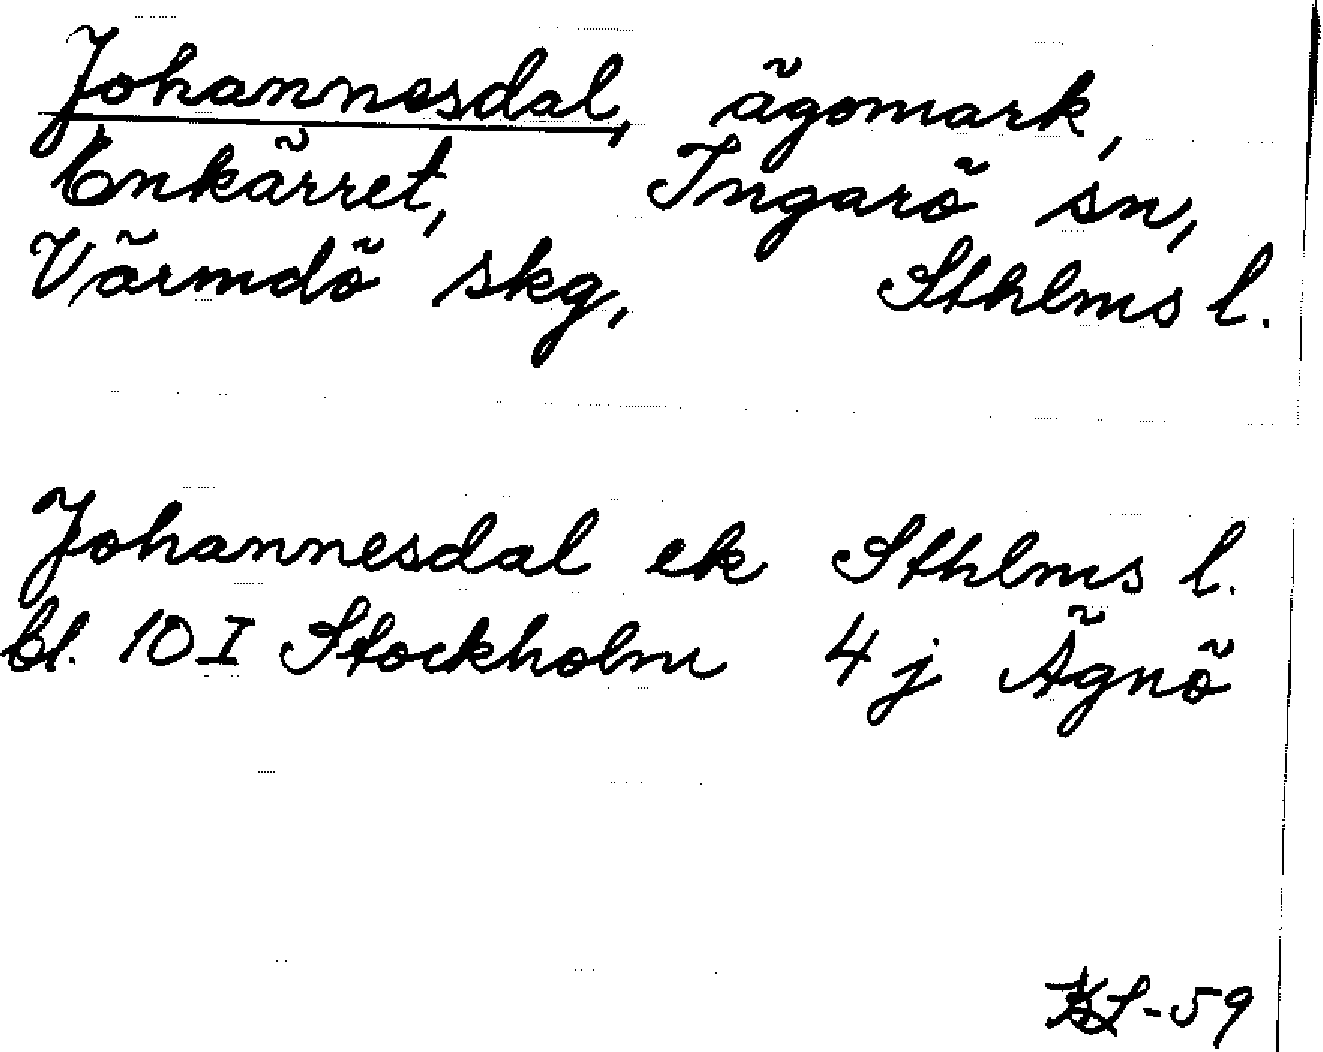 Johannesdal, ägomark,
Enkärret, Ingarö sn,
Värmdö skg, Sthlms l.
Johannesdal ek Sthlms l.
bl. 10 I Stockholm 4 j Ägnö
KL-59